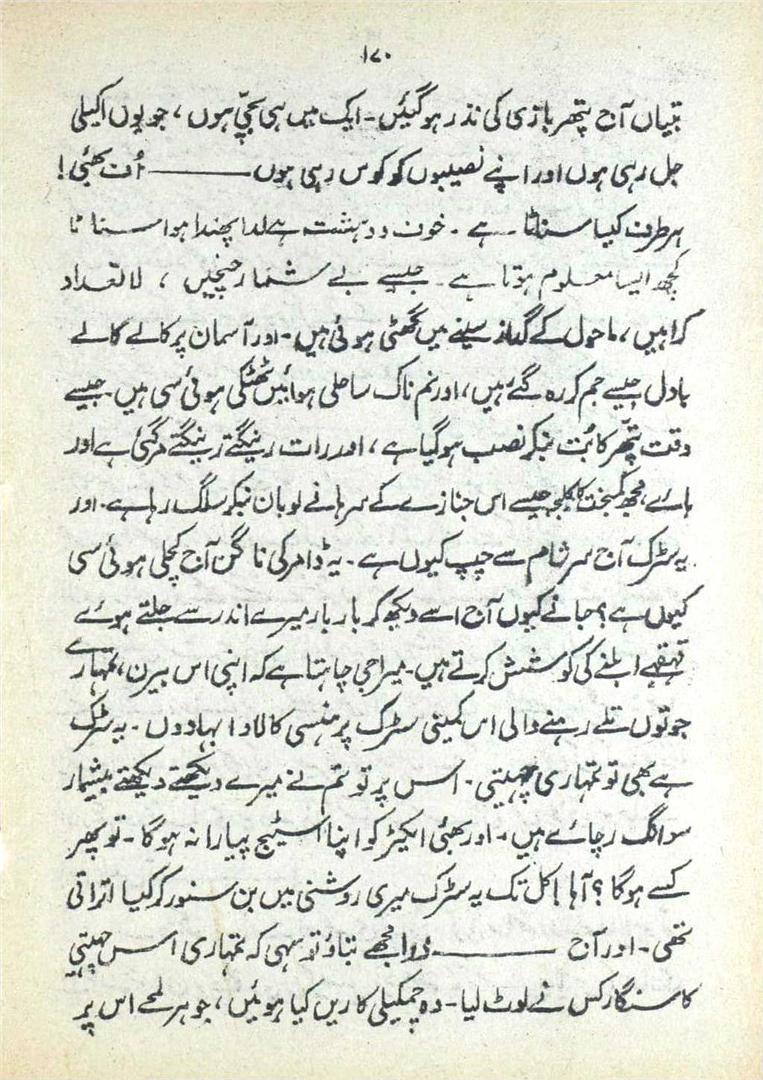 ۱۷۰
بتیاں آج پتھر بازی کی نذر ہوگئیں۔ ایک میں ہی بچّی ہوں ، جو یوں اکیلی
جل رہی ہوں اور اپنے نصیبوں کو کوس رہی ہوں ــــــــ اُف بھئی !
ہر طرف کیا سناٹا ہے ۔ خون و دہشت سے لدا پھندا ہوا سناٹا
کچھ ایسا معلوم ہوتا ہے ۔ جیسے بے شمار چیخیں ، لاتعداد
کراہیں ، ماحول کے گداز سینے میں گھٹی ہوئی ہیں ۔ اور آسمان پر کالے کالے
بادل جیسے جم کر رہ گئے ہیں ، اور نم ناک ساحلی ہوائیں ٹھٹکی ہوئی سی ہیں ۔ جیسے
وقت پتھّر کا بُت بنکر نصب ہوگیا ہے ، اور رات رینگتے رینگتے مرگئی ہے اور
ہائے ، مجھ کمبخت کا کلیجہ جیسے اس جنازے کے سرہانے لوبان بنکر سلگ رہا ہے ۔ اور
یہ سڑک آج سرِ شام سے چپ کیوں ہے ۔ یہ ڈامر کی ناگن آج کچلی ہوئی سی
کیوں ہے ؟ جانے کیوں آج اسے دیکھ کر بار بار میرے اندر سے جلتے ہوئے
قہقہے ابلنے کی کوشش کرتے ہیں ۔ میرا جی چاہتا ہے کہ اپنی اس بیرن ، تمہارے
جوتوں تلے رہنے والی اس کمینی سڑک پر ہنسی کا لاوا بہا دوں ۔ یہ سڑک
ہے بھی تو تمہاری چہیتی ۔ اس پر تو تم نے میرے دیکھتے دیکھتے بیشمار
سوانگ رچائے ہیں ۔ اور بھئی ایکٹر کو اپنا اسٹیج پیارا نہ ہوگا ۔ تو پھر
کسے ہوگا ؟ آہا ! کل تک یہ سڑک میری روشنی میں بن سنور کر کیا اتراتی
تھی ۔ اور آج ــــــــ ذرا مجھے بتاؤ تو سہی کہ تمہاری اس چہیتی
کا سنگار کس نے لوٹ لیا ۔ وہ چمکیلی کاریں کیا ہوئیں ، جو ہر لمحے اس پر